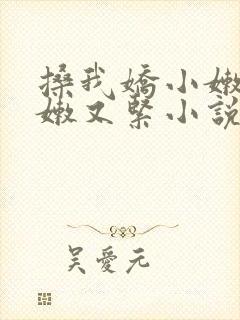 搡我嬌小嫩
嫩又緊小說
吳愛元